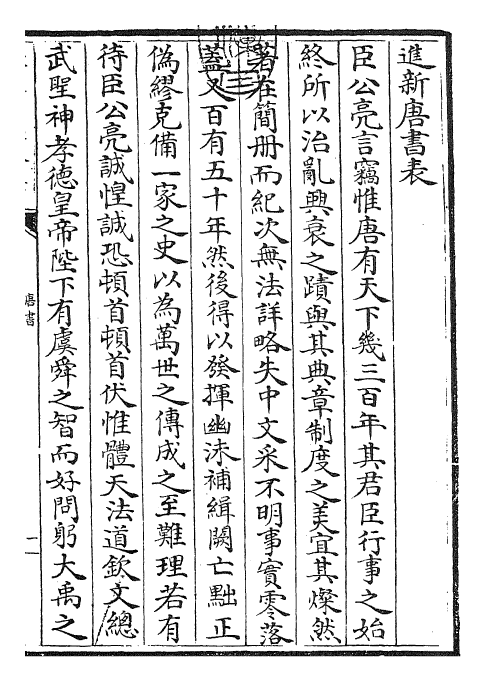 進新唐書表
臣公亮言竊惟唐有天下幾三百年其君臣行事之始
終所以治亂興衰之蹟與其典章制度之美宜其燦然
著在簡册而紀次無法詳略失中文采不明事實零落
蓋又百有五十年然後得以發揮幽沬補緝闕亡黜正
偽繆克備一家之史以為萬世之傳成之至難理若有
待臣公亮誠惶誠恐頓首頓首伏惟體天法道欽文總
武聖神孝德皇帝陛下有虞舜之智而好問躬大禹之
唐書
一